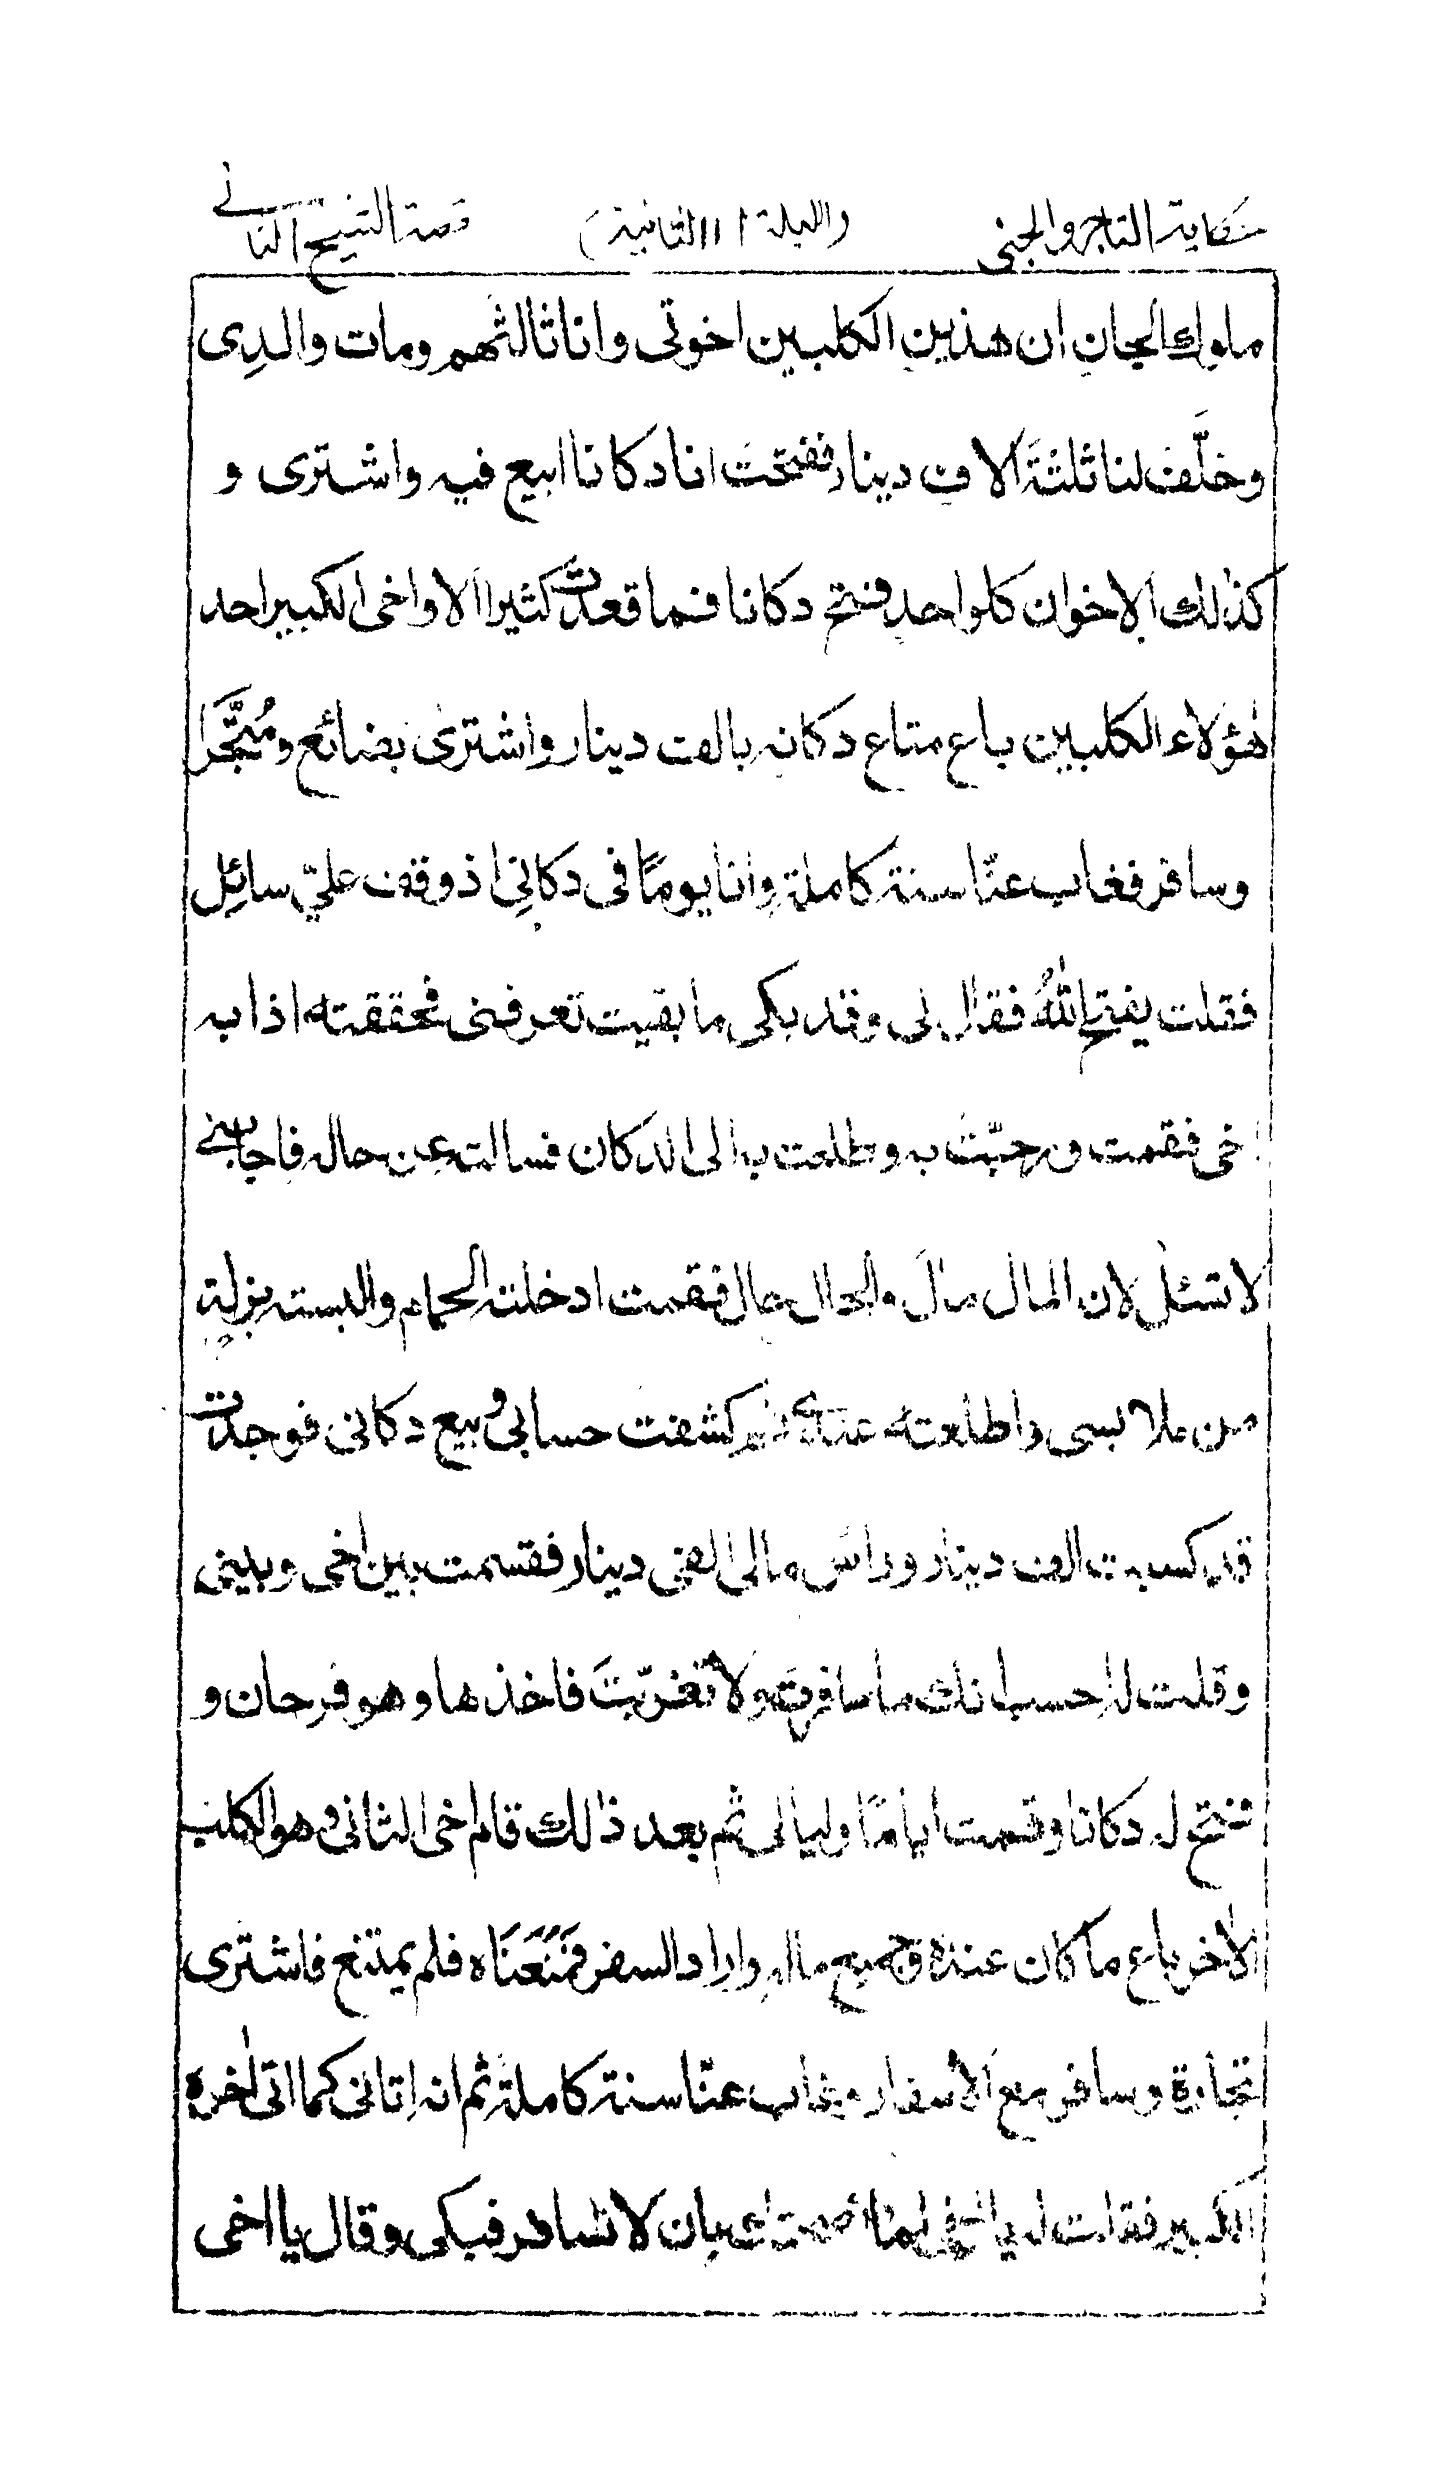 حكاية التاجر والجني (الليلة ١١ الثانية) قصة الشيخ الثاني
ملوك الجان ان هذين الكلبين اخوتى وانا ثالثهم ومات والدِى
وخلَّف لنا ثلثة آلاف دينار ففتحت انا دكانا ابيع فيه واشترى و
كذلك الاخوان كلواحد فتح دكانا فما قعدت كثيرا الا واخى الكبير احد
هٰؤلاء الكلبين باع متاع دكانه بالف دينار واشترى بضائع ومُتَّجَرا
وسافر فغاب عنّا سنة كاملة وانا يومًا فى دكانى اذ وقف عليّ سائِل
فقلت يفتح اللهُ فقال لى وقد بكى ما بقيت تعرفنى فحققته اذا به
اخى فقمت ورحبّت به وطلعت به الى الدكان فسالته عن حاله فاجابنى
لا تسئل لان المال مال والحال حال فقمت ادخلته الحمام والبسته بزلة
من ملابسى واطلعته عندى ثم كشفت حسابى وبيع دكانى فوجدت
قد كسبت الف دينار وراس مالى الفى دينار فقسمت بين اخى وبينى
وقلت له احسب انك ما سافرت ولا تغرّبتَ فاخذها وهو فرحان و
فتح له دكانا وقمت ايامًا وليالى ثم بعد ذالك قام اخى الثانى وهو الكلب
الاخر باع ما كان عنده وجميع ماله واراد السفر فَمَنَعْنَاه فلم يمتنع فاشترى
تجارة وسافر مع الاسفار وغاب عنّا سنة كاملة ثم انه اتانى كما اتى اخوه
الكبير فقلت له يا اخى اما نصحتك بان لا تسافر فبكى وقال يا اخى